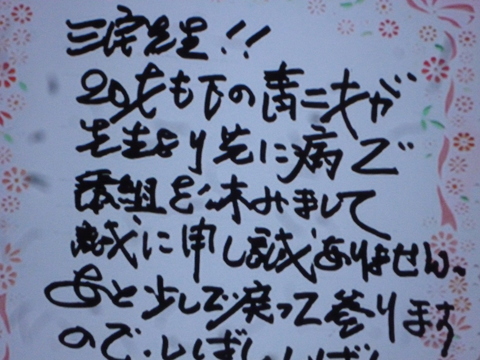 三宅先生!!
20才も下の青二才が
先生より先に病で
番組を休みまして
誠に申し訳ありません。
あと少しで戻って参ります
ので、しばししばし